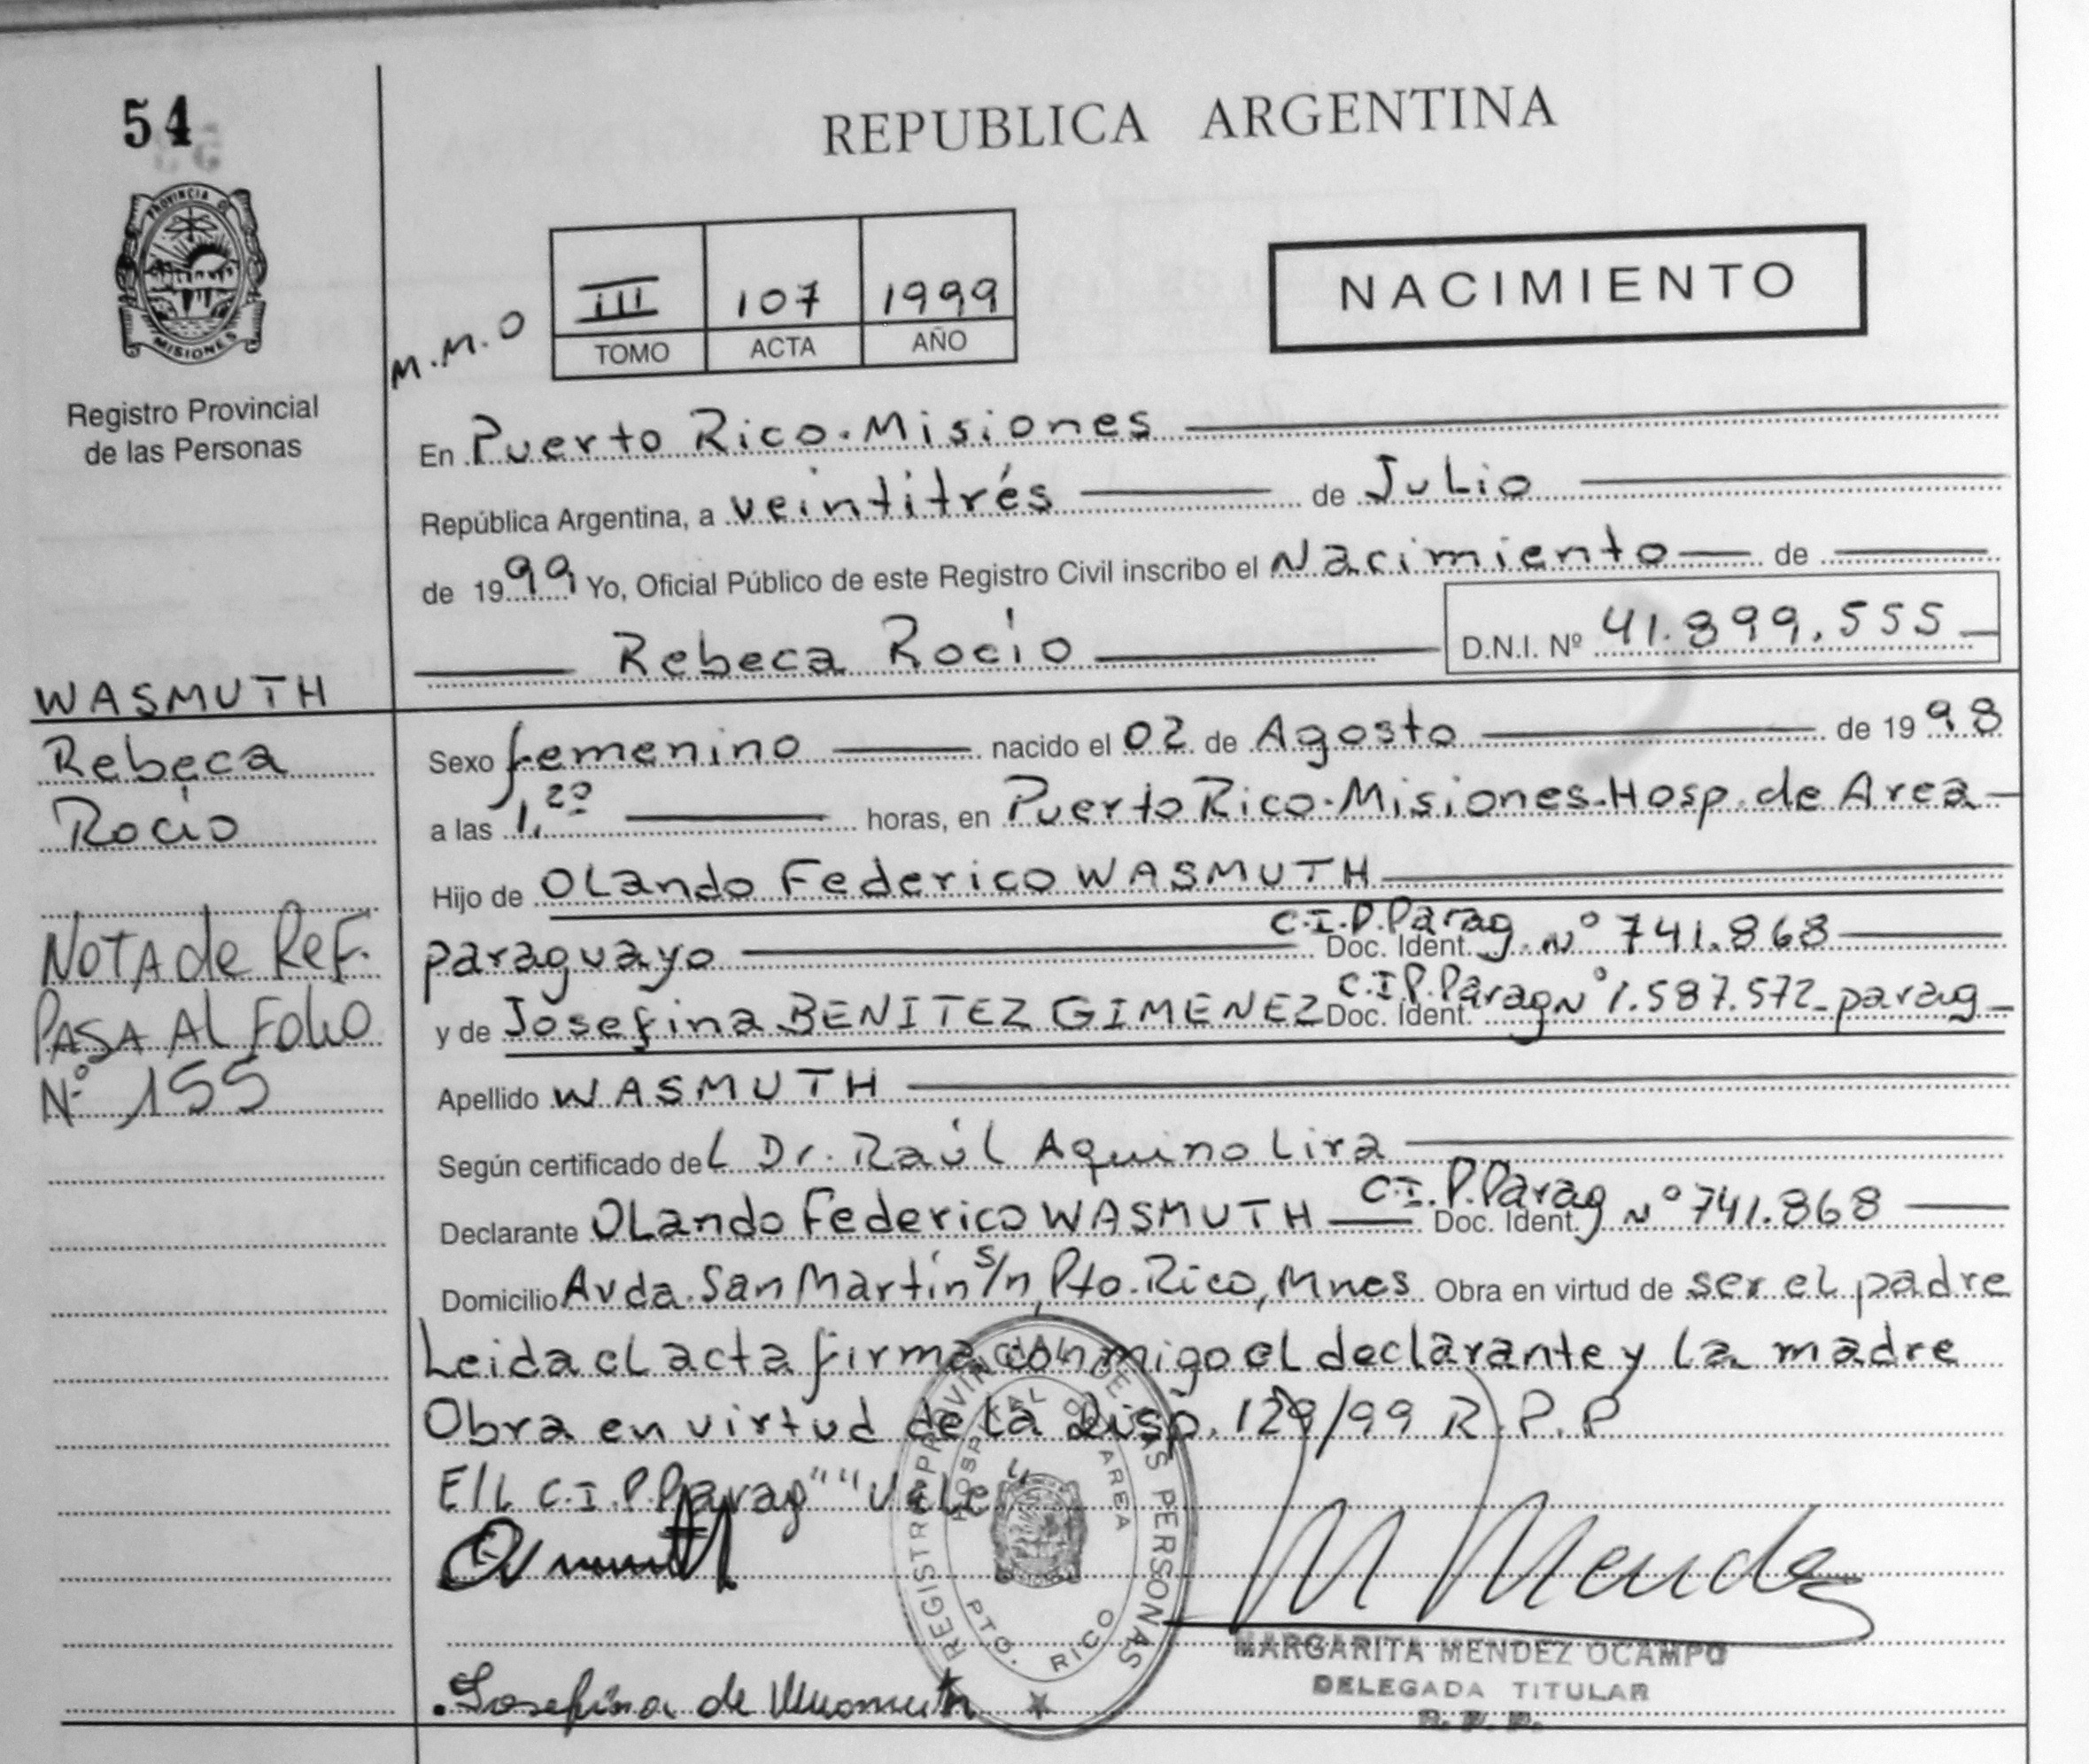 54
PROVINCIA D
MISIONES
Registro Provincial
de las Personas
REPUBLICA ARGENTINA
M.M.O
III 107 1999
TOMO ACTA AÑO
NACIMIENTO
En Puerto Rico.Misiones
República Argentina, a veintitrés de Julio
de 1999 Yo, Oficial Público de este Registro Civil inscribo el Nacimiento de
Rebeca Rocío D.N.I. Nº 41.899.555
WASMUTH
Rebeca
Rocío
NOTA de ReF.
PASA Al Folio
Nº 155
Sexo femenino nacido el 02 de Agosto de 1998
a las 1,20 horas, en Puerto Rico.Misiones-Hosp. de Area
Hijo de OLando Federico WASMUTH
paraguayo C.I.P.Parag Doc. Ident. Nº 741.868
y de Josefina BENITEZ GIMENEZ C.I.P.Parag Doc. Ident. Nº 1.587.572-parag
Apellido WASMUTH
Según certificado del Dr. Raúl Aquino Lira
Declarante OLando Federico WASMUTH C.I.P.Parag Doc. Ident. Nº 741.868
Domicilio Avda.San Martín S/n, Pto.Rico, Mnes Obra en virtud de ser el padre
Leida el acta firma conmigo el declarante y la madre
Obra en virtud de la Disp. 129/99 R.P.P
E/L C.I.P.Parag" "VaLe"
REGISTRO PROVINCIAL DE LAS PERSONAS
HOSPITAL DE AREA
PTO. RICO
M Mendez
MARGARITA MENDEZ OCAMPO
DELEGADA TITULAR
R. P. P.
Josefina de